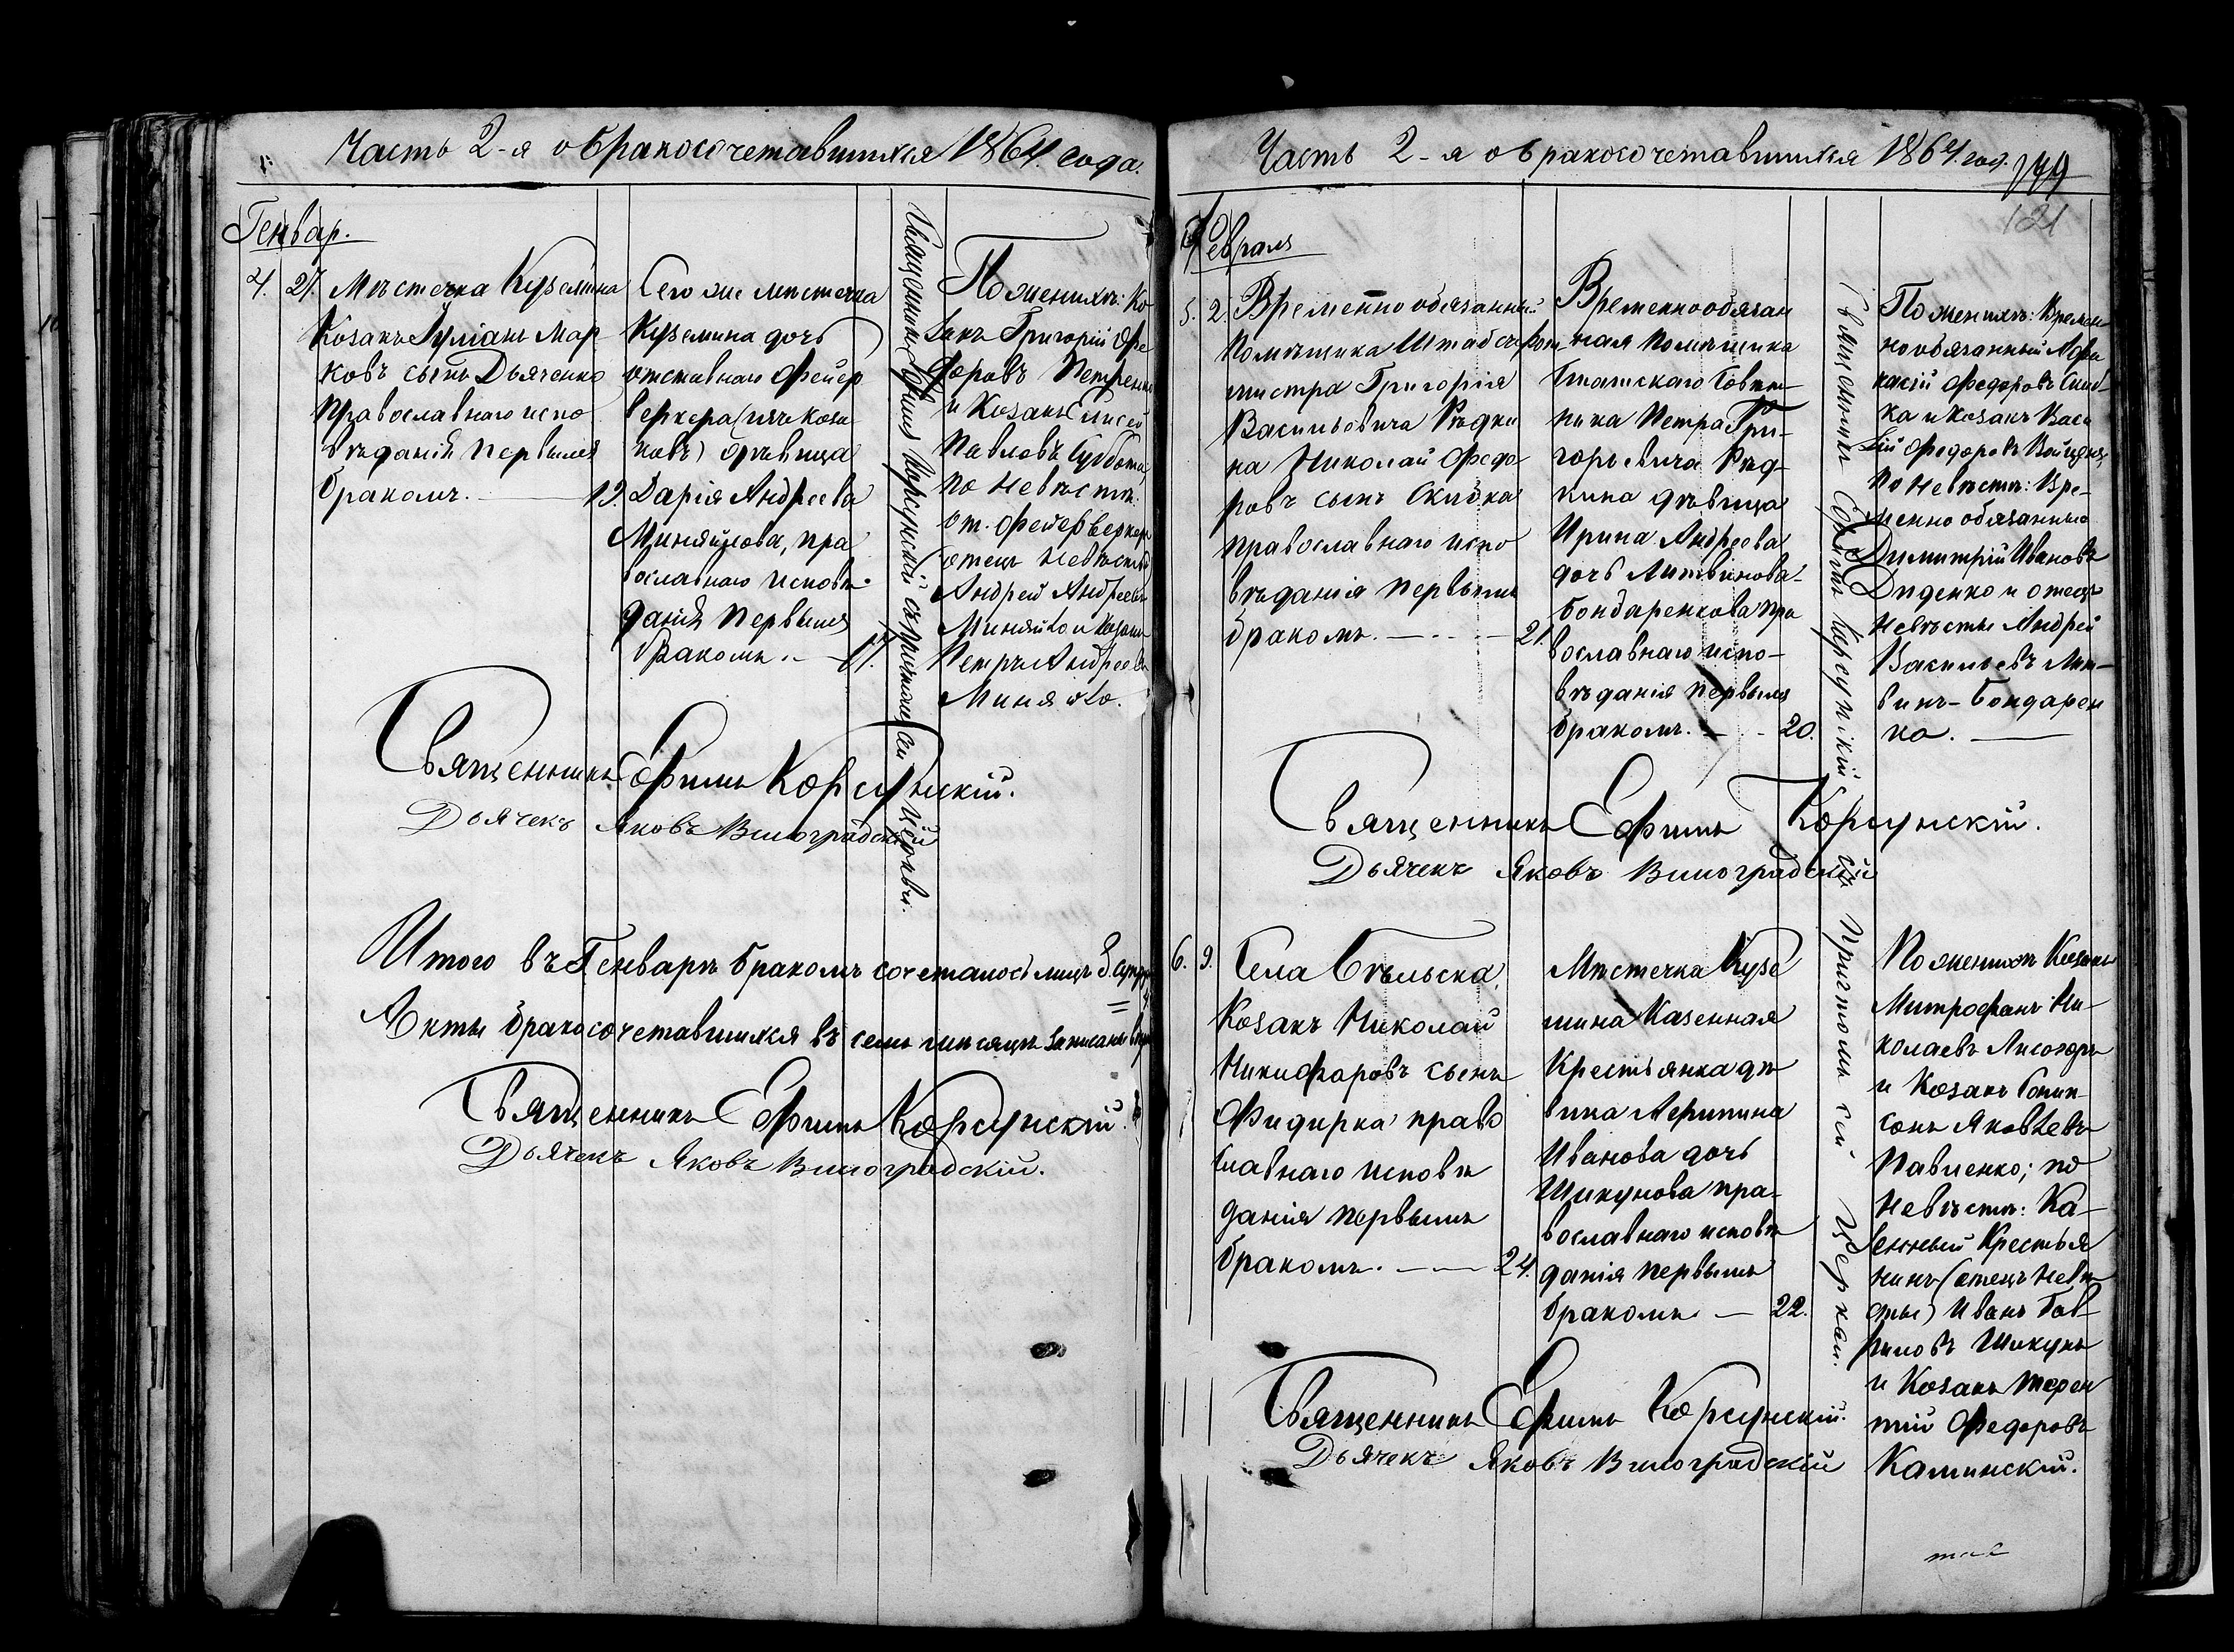 Часть 2-я о бракосочетавшихся 1864 года.
Генвар.
4. 27. Мѣстечка Куземина
Козакъ Іуліанъ Мар
ковъ сынъ Дьяченко
православнаго испо
вѣданія первымъ
бракомъ. 19.
Сего же мѣстечка
Куземина дочь
отставнаго фейер
веркера (изъ коза
ковъ) дѣвица
Дарія Андреева
Миняйлова, пра
вославнаго исповѣ
данія первымъ
бракомъ. 17.
Священникъ Ефимъ Корсунскій съ причтомъ сей церкви.
По женихѣ: Ко
закъ Григорій Фе
доровъ Петренко
и Козакъ Елисей
Павловъ Суббота,
по невѣстѣ:
от. фейерверкеръ
отецъ невѣсты
Андрей Андреевъ
Миняйло и Козакъ
Петръ Андреевъ
Миняйло.
Священникъ Ефимъ Корсунскій.
Дьячекъ Яковъ Виноградскій
Итого въ Генварѣ бракомъ сочеталось лицъ 8.
Акты бракосочетавшихся въ семъ мѣсяцѣ записаны
Священникъ Ефимъ Корсунскій.
Дьячекъ Яковъ Виноградскій.
Часть 2-я о бракосочетавшихся 1864 год.
121
Февраля
5. 2. Временно обязанный
помѣщика Штабсъ-Рот
мистра Григорія
Васильевича Рѣдки
на Николай Федо
ровъ сынъ Скибка
православнаго испо
вѣданія первымъ
бракомъ. 21.
Временнообязан
ная помѣщика
Статскаго Совѣт
ника Петра Гри-
горьевича Рѣд-
кина дѣвица
Ирина Андреева
дочь Литвинова-
Бондаренкова пра
вославнаго испо-
вѣданія первымъ
бракомъ. 20.
Священникъ Ефимъ Корсунскій съ причтомъ сей церкви.
По женихѣ: Времен-
нообязанный Афа
насій Федоровъ Скиб-
ка и козакъ Васи
лій Федоровъ
По невѣстѣ: Вре-
менно обязанные
Димитрій Ивановъ
Диденко и отецъ
невѣсты Андрей
Васильевъ Лит-
винъ-Бондарен
ко.
Священникъ Ефимъ Корсунскій.
Дьячекъ Яковъ Виноградскій
6. 9. Села Бѣльска
Козакъ Николай
Никифоровъ сынъ
Фидирка право
славнаго исповѣ
данія первымъ
бракомъ. 24.
Мѣстечка Кузе
мина Казенная
Крестьянка дѣ
вица Агрипина
Иванова дочь
Шикунова пра-
вославнаго исповѣ
данія первымъ
бракомъ 22.
По женихѣ Козакъ
Митрофанъ Ни-
колаевъ Лисогоръ
и Козакъ
Яковлевъ
Павленко; по
невѣстѣ: Ка-
зенный Крестья
нинъ (отецъ невѣ
сты) Иванъ Гав
риловъ Шикунъ
и Козакъ Терен
тій Федоровъ
Калинскій.
Священникъ Ефимъ Корсунскій.
Дьячекъ Яковъ Виноградскій